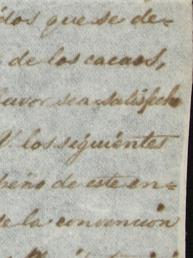 dos que se de-
de los cacaos,
favor sea satisfecho
V. los siguientes
de este en-
se la convención